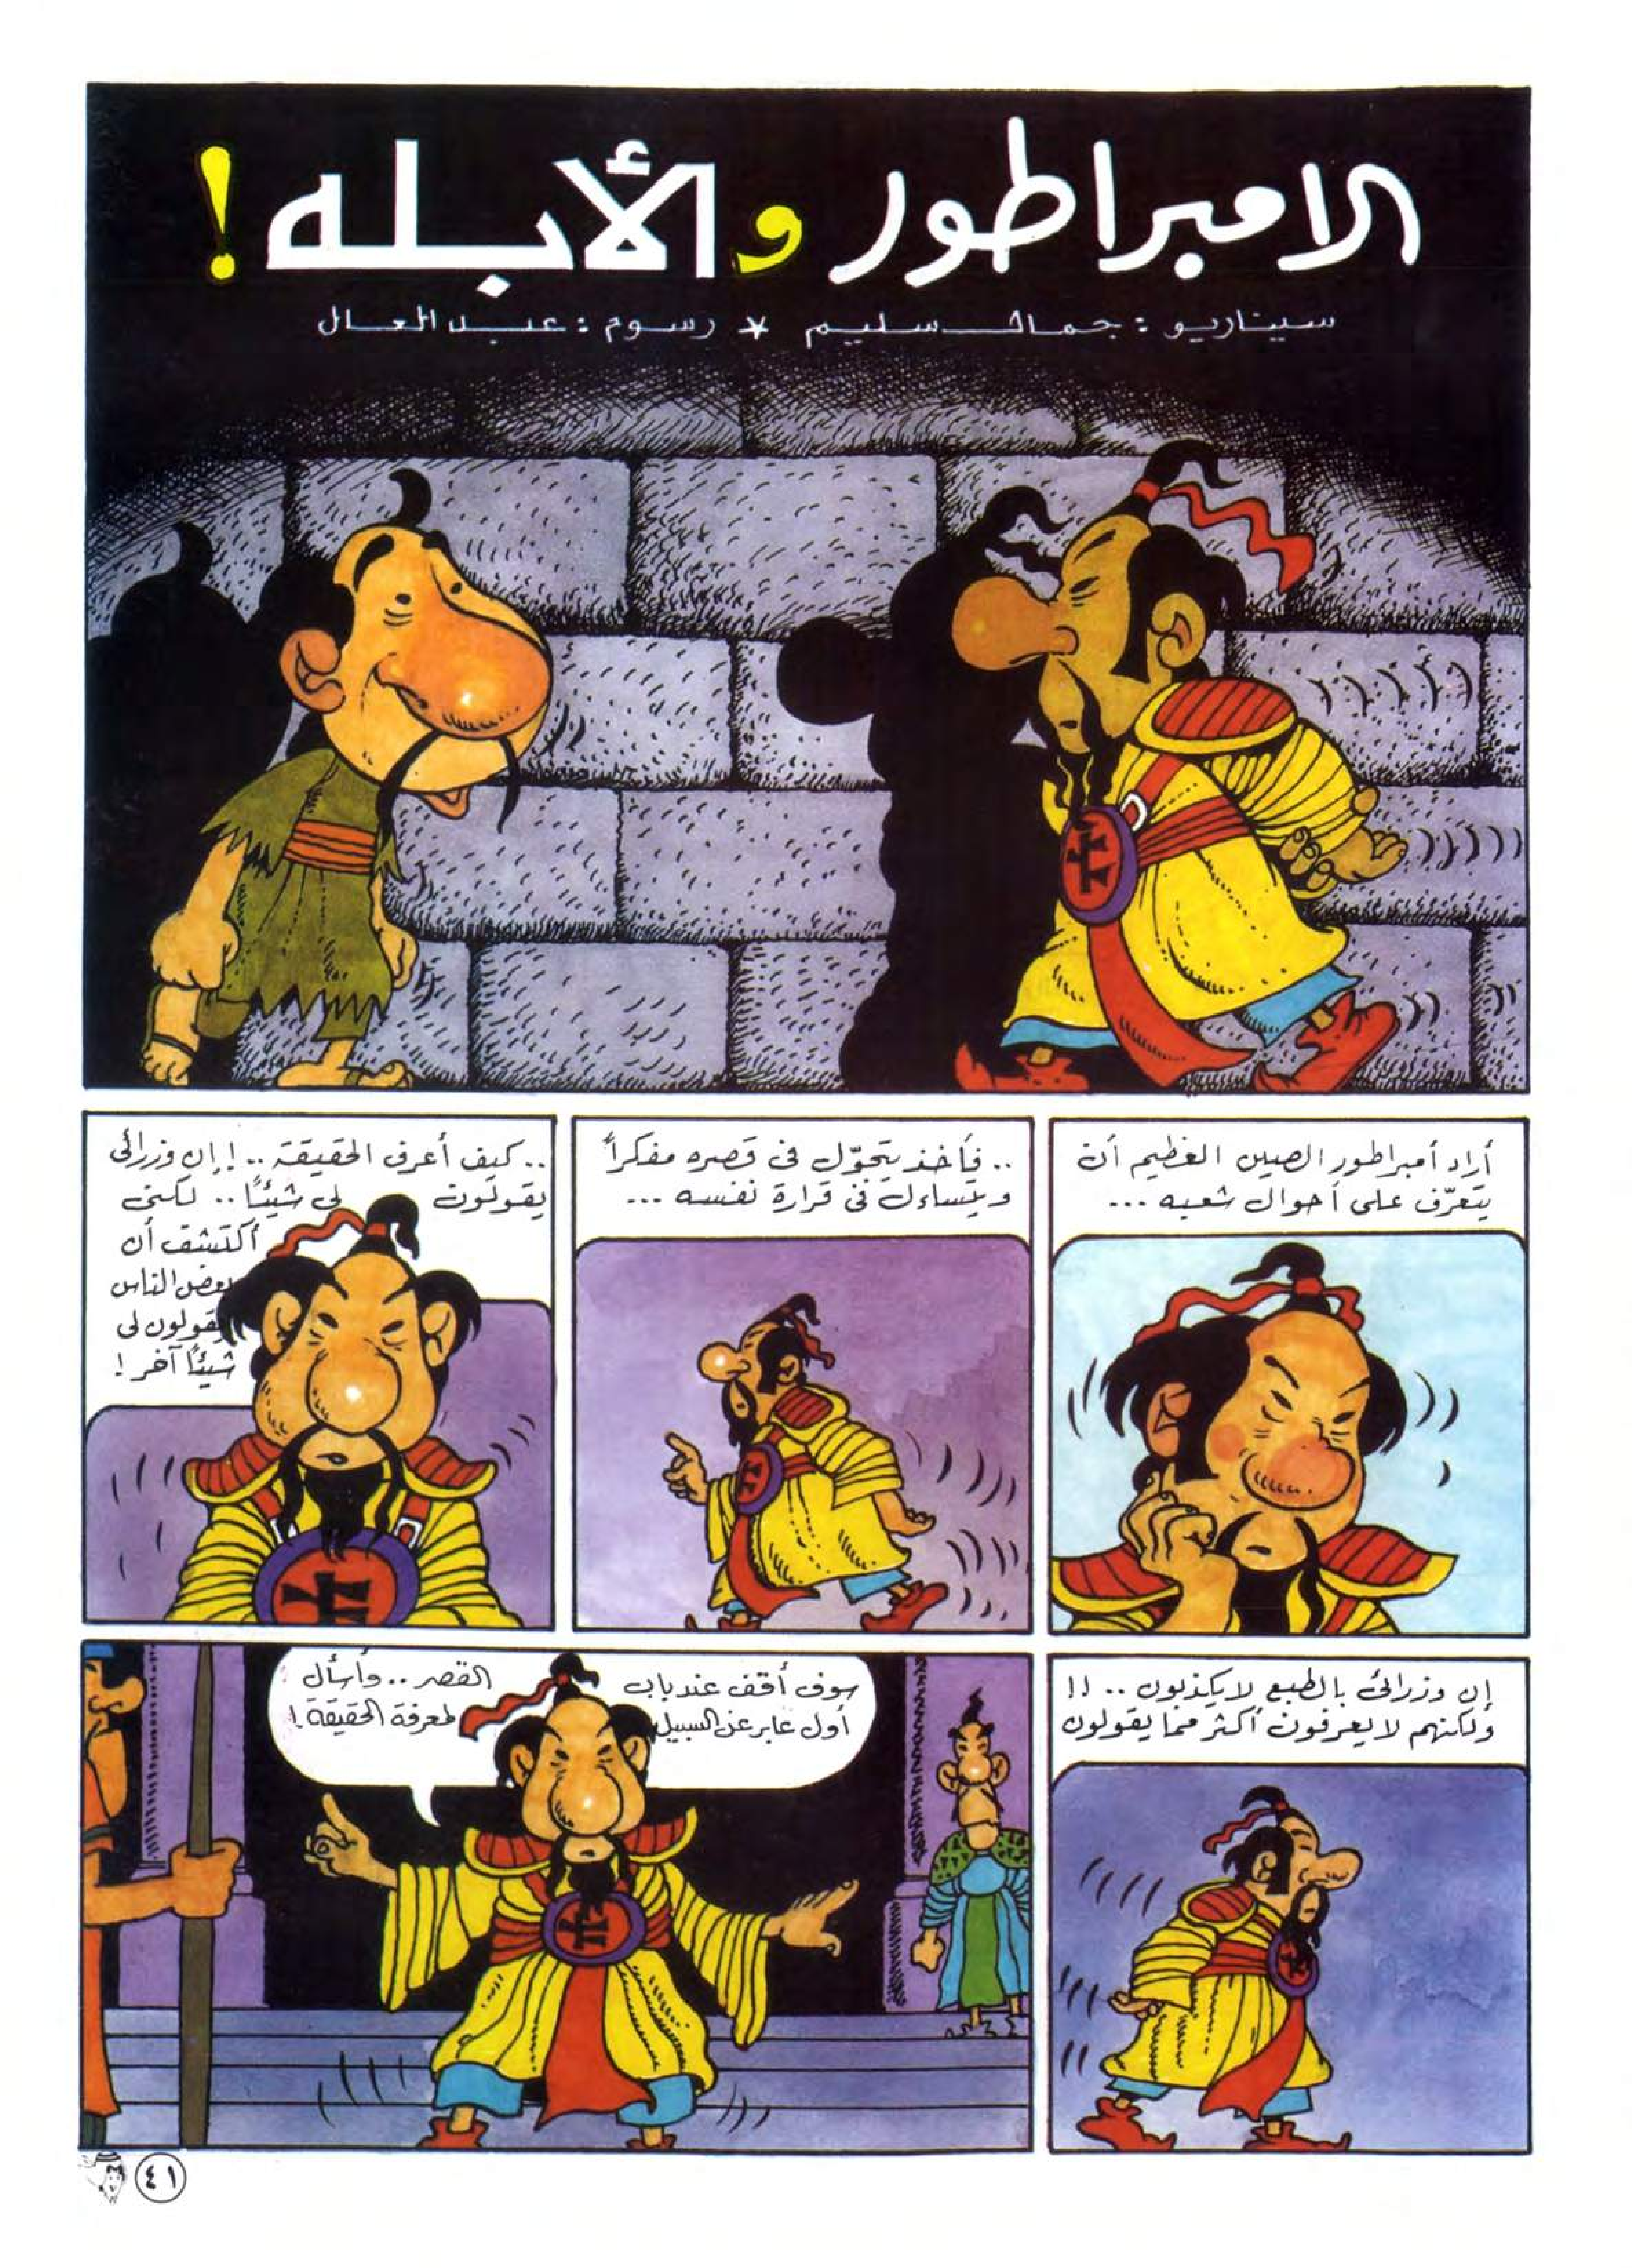 الامبراطور والأبله!
سيناريو: جمال سليم * رسوم: عبد العال
أراد أمبراطور الصين العظيم أن
يتعرّف على أحوال شعبه ...
.. فأخذ يتجوّل فى قصره مفكراً
ويتساءل فى قرارة نفسه ...
.. كيف أعرف الحقيقة.. ! إن وزرائى
يقولون لى شيئاً .. لكنى
أكتشف أن
بعض الناس
يقولون لى
شيئاً آخر!
إن وزرائى بالطبع لا يكذبون .. !!
ولكنهم لا يعرفون أكثر مما يقولون
سوف أقف عند باب القصر .. وأسأل
أول عابر عن السبيل لمعرفة الحقيقة!
٤١